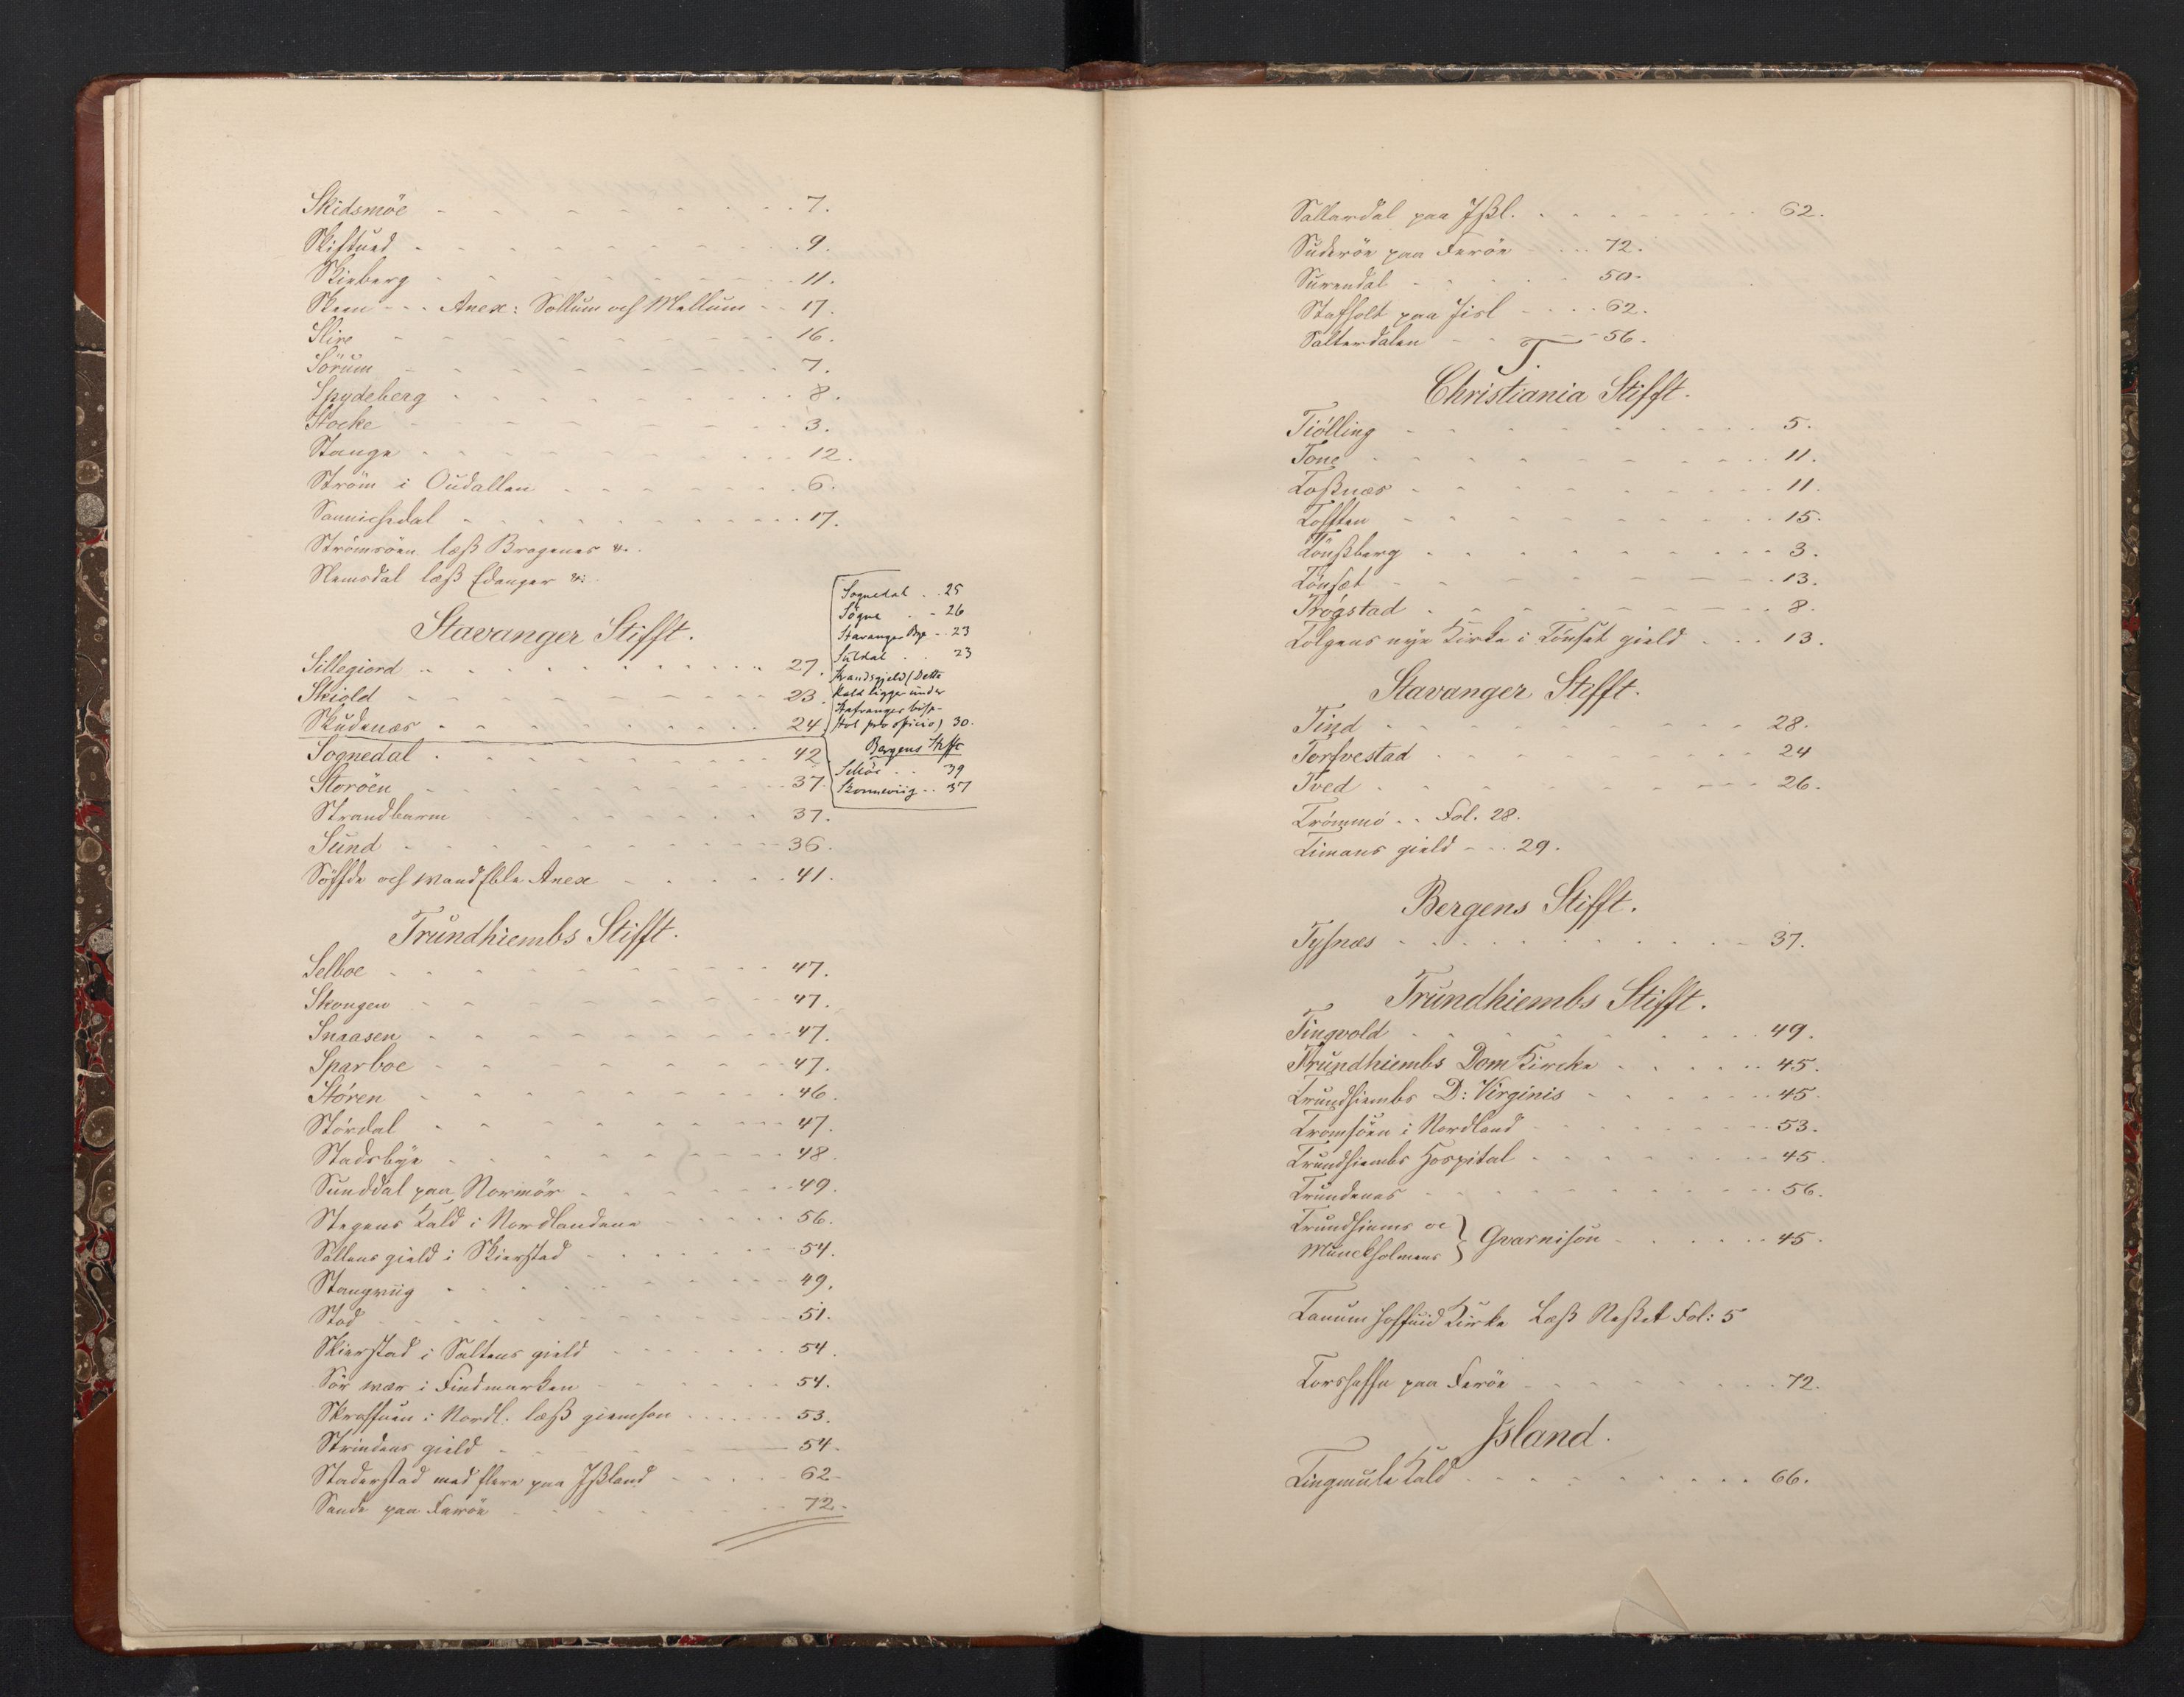 Skidsmöe - - - 7.
Skiftued - - - 9.
Skieberg - - - 11.
Skeen - - - Anex: Sollum och Mellum - - 17.
Slire - - - 16.
Sörum - - - 7.
Spydeberg - - - 8.
Stocke - - - 3.
Stange - - - 12.
Ström i Oudallen - - - 6.
Sannichidal - - - 17.
Strömsöen læß Bragenes &.
Slemdal læß Edanger &:
Stavanger Stifft.
Sillegiord - - - 27.
Skiold - - - 23.
Skudenæs - - - 24
Sognedal . . 25
Sögne . . 26
Stavanger Bye . . 23
Suldal . . 23
Strandsgield (Dette
Kald ligger under
Stafvanger bisp-
stol pro officio) 30.
Bergens Stift
Selöe . . 39
Skonneviig . . 37
Sognedal - - - 42
Storöen - - - 37
Strandbarm - - - 37.
Sund - - - 36.
Söffde och Wandelble Anex - - - 41.
Trundhiembs Stifft.
Selboe - - - 47.
Skongen - - - 47.
Snaasen - - - 47.
Sparboe - - - 47.
Stören - - - 46.
Stördal - - - 47.
Stadsbye - - - 48.
Sunddal paa Normör - - - 49.
Stegens Kald i Nordlandene - - - 56.
Saltens gield i Skierstad - - - 54.
Stangviig - - - 49.
Stod - - - 51.
Skierstad i Saltens gield - - - 54.
Sör wær i Findmarken - - - 54.
Skraffuen i Nordl. læß giemsöen - - - 53.
Strindens gield - - - 54.
Staderstad med flere paa Jßland - - - 62.
Sande paa Færöe - - - 72.
Sallardal paa Jßl. - - - 62.
Suderöe paa Færöe - - - 72.
Surendal - - - 50.
Stafholt paa Jisl - - - 62.
Salterdalen - - - 56.
T.
Christiania Stifft.
Tiölling - - - 5.
Tone - - - 11.
Toßnæs - - - 11.
Tofften - - - 15.
Tönßberg - - - 3.
Tönset - - - 13.
Trögstad - - - 8.
Tolgens nye Kirke i Tönset gield - - - 13.
Stavanger Stifft.
Tind - - - 28.
Torfvestad - - - 24
Tved - - - 26.
Trömmö . . Fol. 28.
Timans gield - - - 29.
Bergens Stifft.
Tysnæs - - - 37.
Trundhiembs Stifft.
Tingvold - - - 49.
Trundhiembs Dom Kircke - - - 45.
Trundhiembs D: Virginis - - - 45.
Tromsöen i Nordland - - - 53.
Trundhiembs Hospital - - - 45.
Trundenes - - - 56.
Trundhiems oc
Munckholmens } Gvarnison - - - 45.
Tanum hoffuid Kirke Læß Neßet Fol: 5
Torshaffn paa Færöe - - - 72.
Jsland.
Tingmule Kald - - - 66.